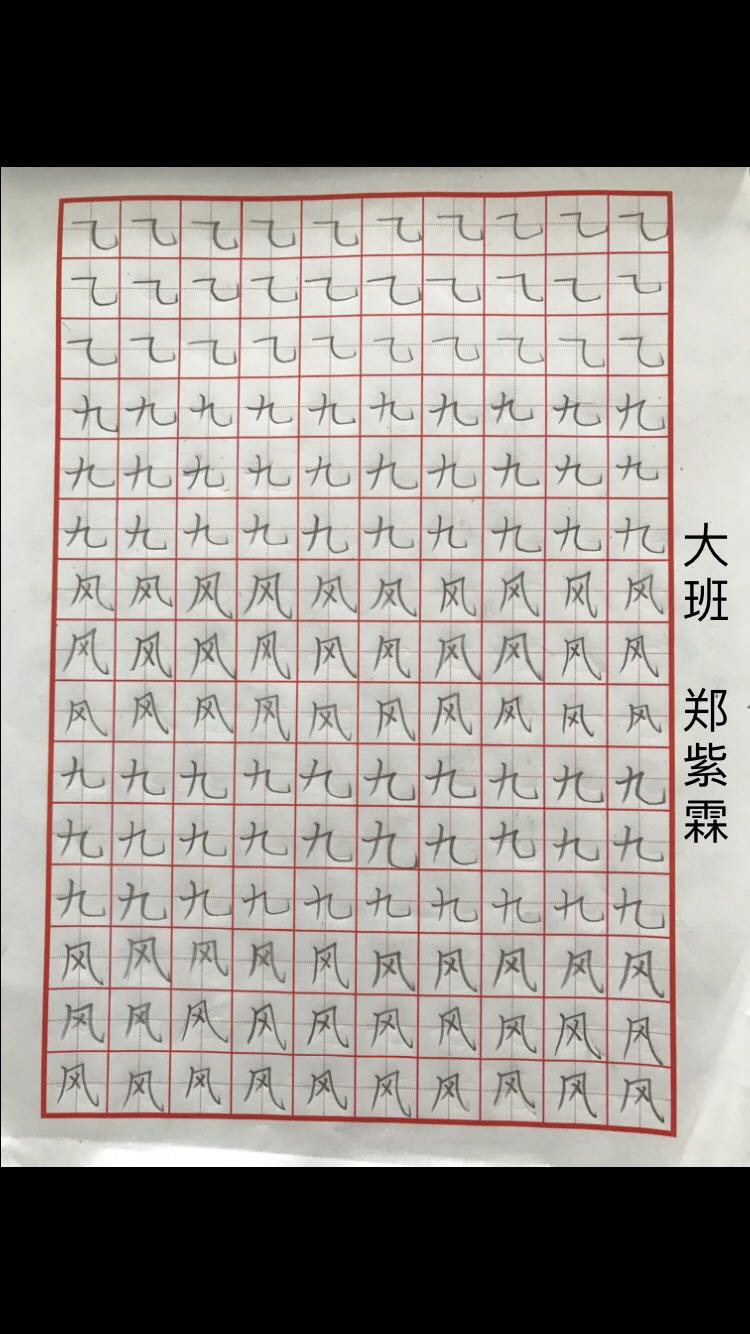 乙乙乙乙乙乙乙乙乙乙
乙乙乙乙乙乙乙乙乙乙
乙乙乙乙乙乙乙乙乙乙
九九九九九九九九九九
九九九九九九九九九九
九九九九九九九九九九
风风风风风风风风风风
风风风风风风风风风风
风风风风风风风风风风
九九九九九九九九九九
九九九九九九九九九九
九九九九九九九九九九
风风风风风风风风风风
风风风风风风风风风风
风风风风风风风风风风
大班 郑紫霖